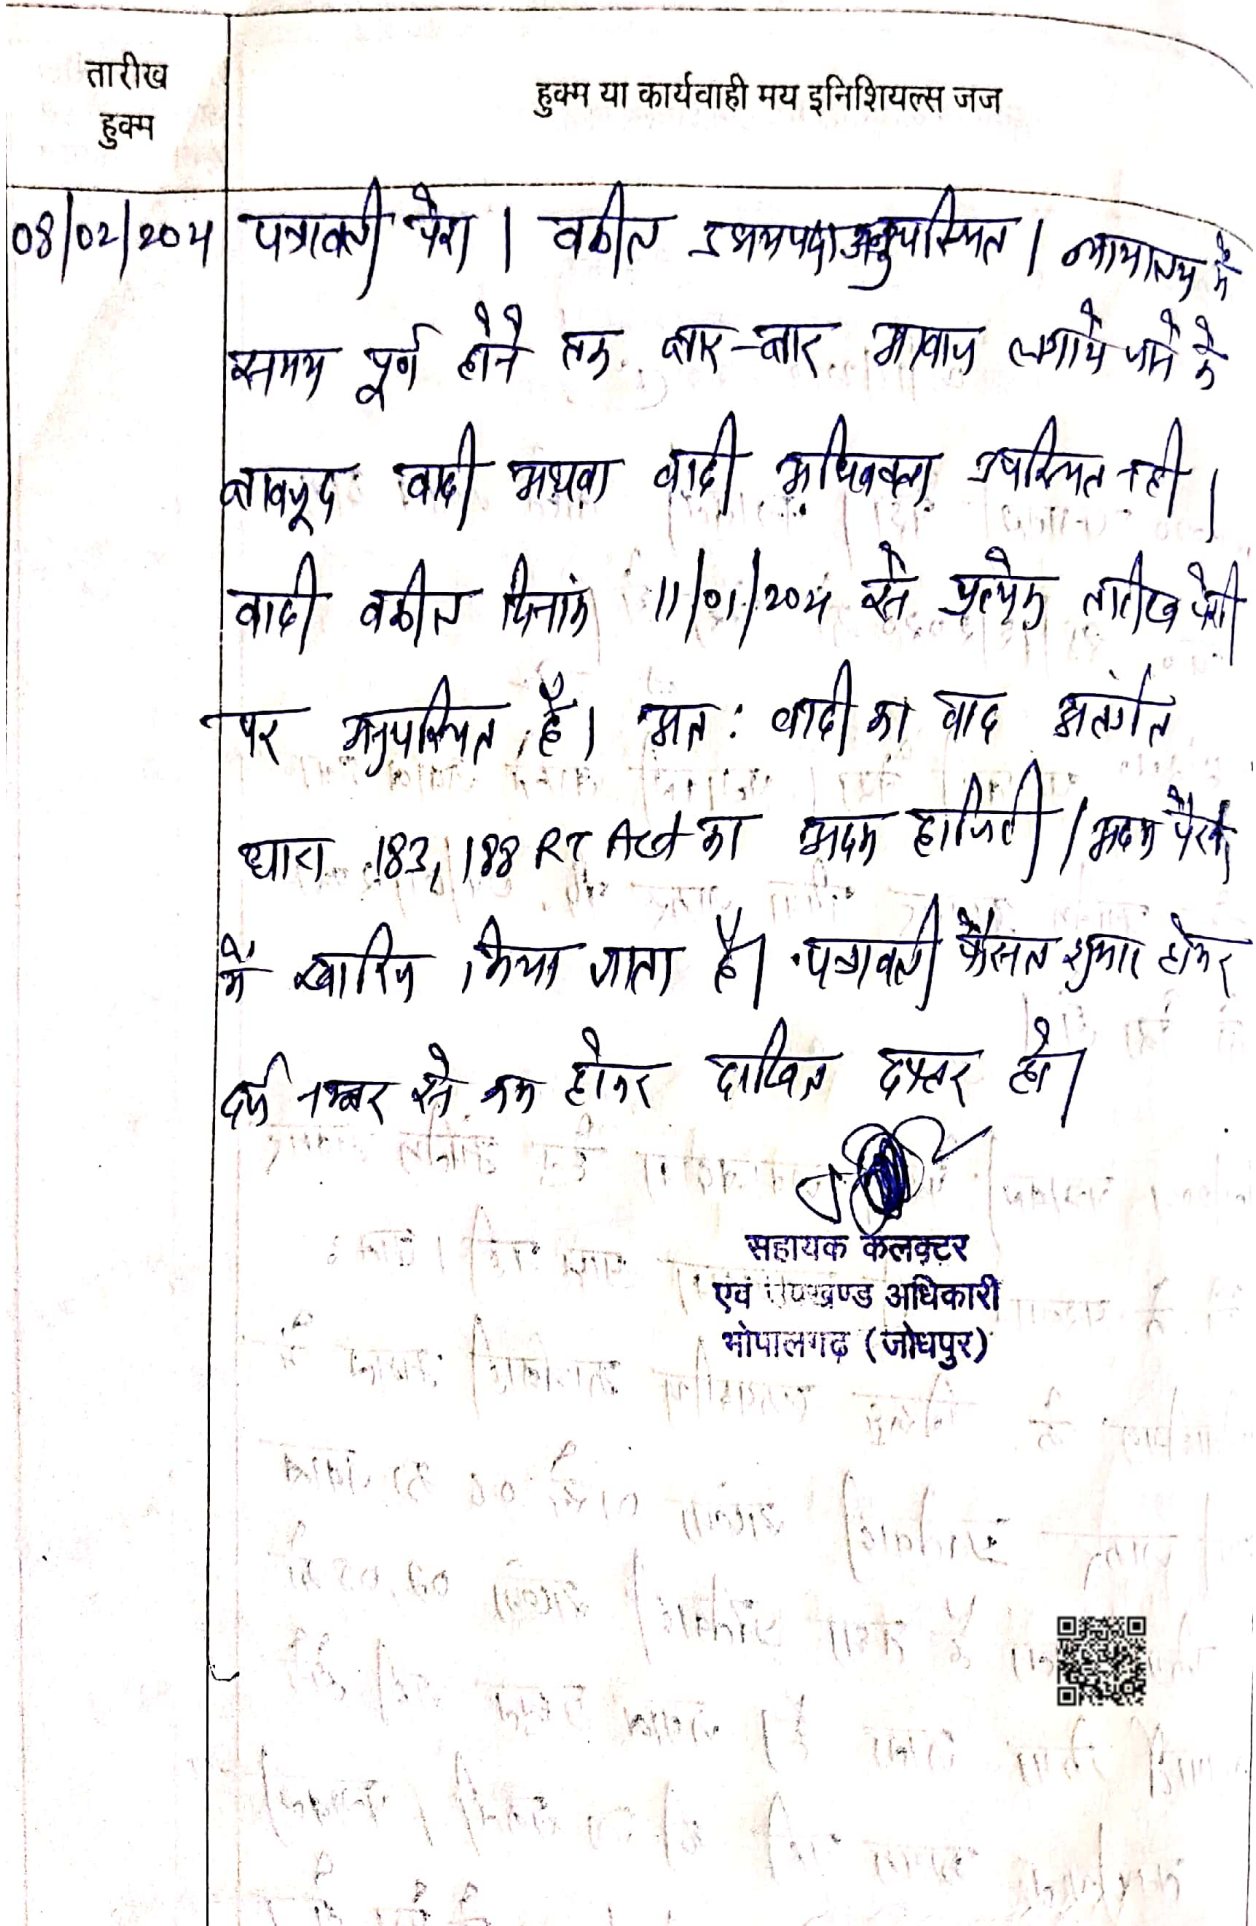 तारीख
हुक्म
हुक्म या कार्यवाही मय इनिशियल्स जज
08/02/2024 पत्रावली पेश। वकील उभयपक्ष अनुपस्थित। न्यायालय में
समय पूर्ण होने तक बार-बार आवाज लगाये जाने के
बावजूद वादी अथवा वादी अधिवक्ता उपस्थित नही।
वादी वकील दिनांक 11/01/2024 से प्रत्येक तारीख पेशी
पर अनुपस्थित है। अत: वादी का वाद अतर्गत
धारा 183, 188 RT Act का अदम हाजिरी / अदम पैरवी
में खारिज किया जाता है। पत्रावली फैसल शुमार होकर
दर्ज नम्बर से कम होकर दाखिल दफ्तर हो।
सहायक कलक्टर
एवं उपखण्ड अधिकारी
भोपालगढ़ (जोधपुर)